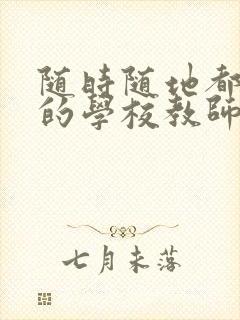 随時随地都
的學校教師
七月未落